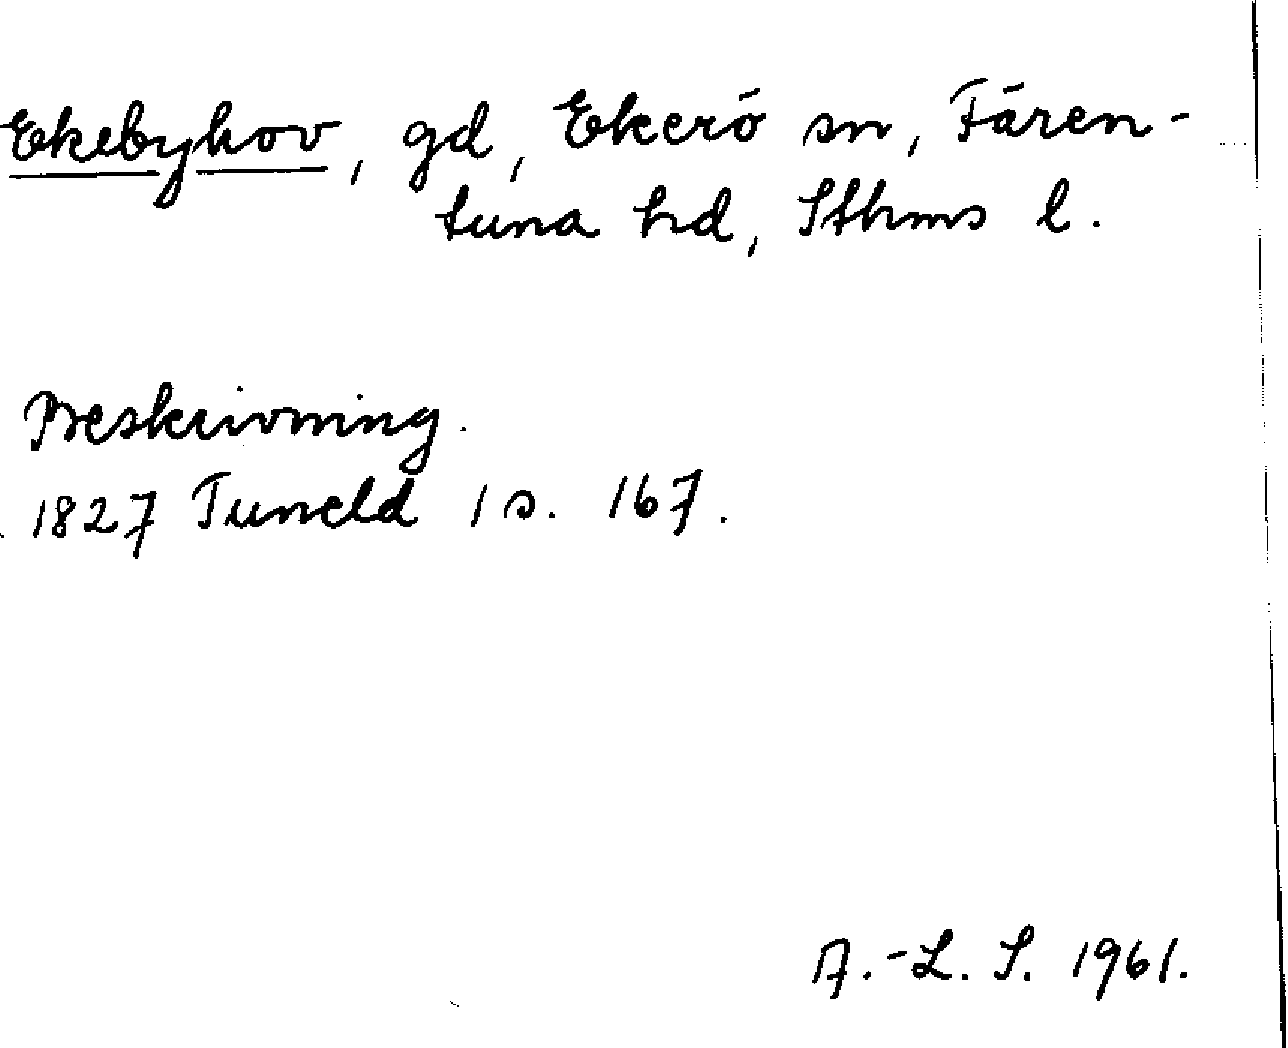 Ekebyhov, gd, Ekerö sn, Fären-
tuna hd, Sthms l.
Beskrivning.
1827 Tuneld 1 s. 167.
A.-L. S. 1961.